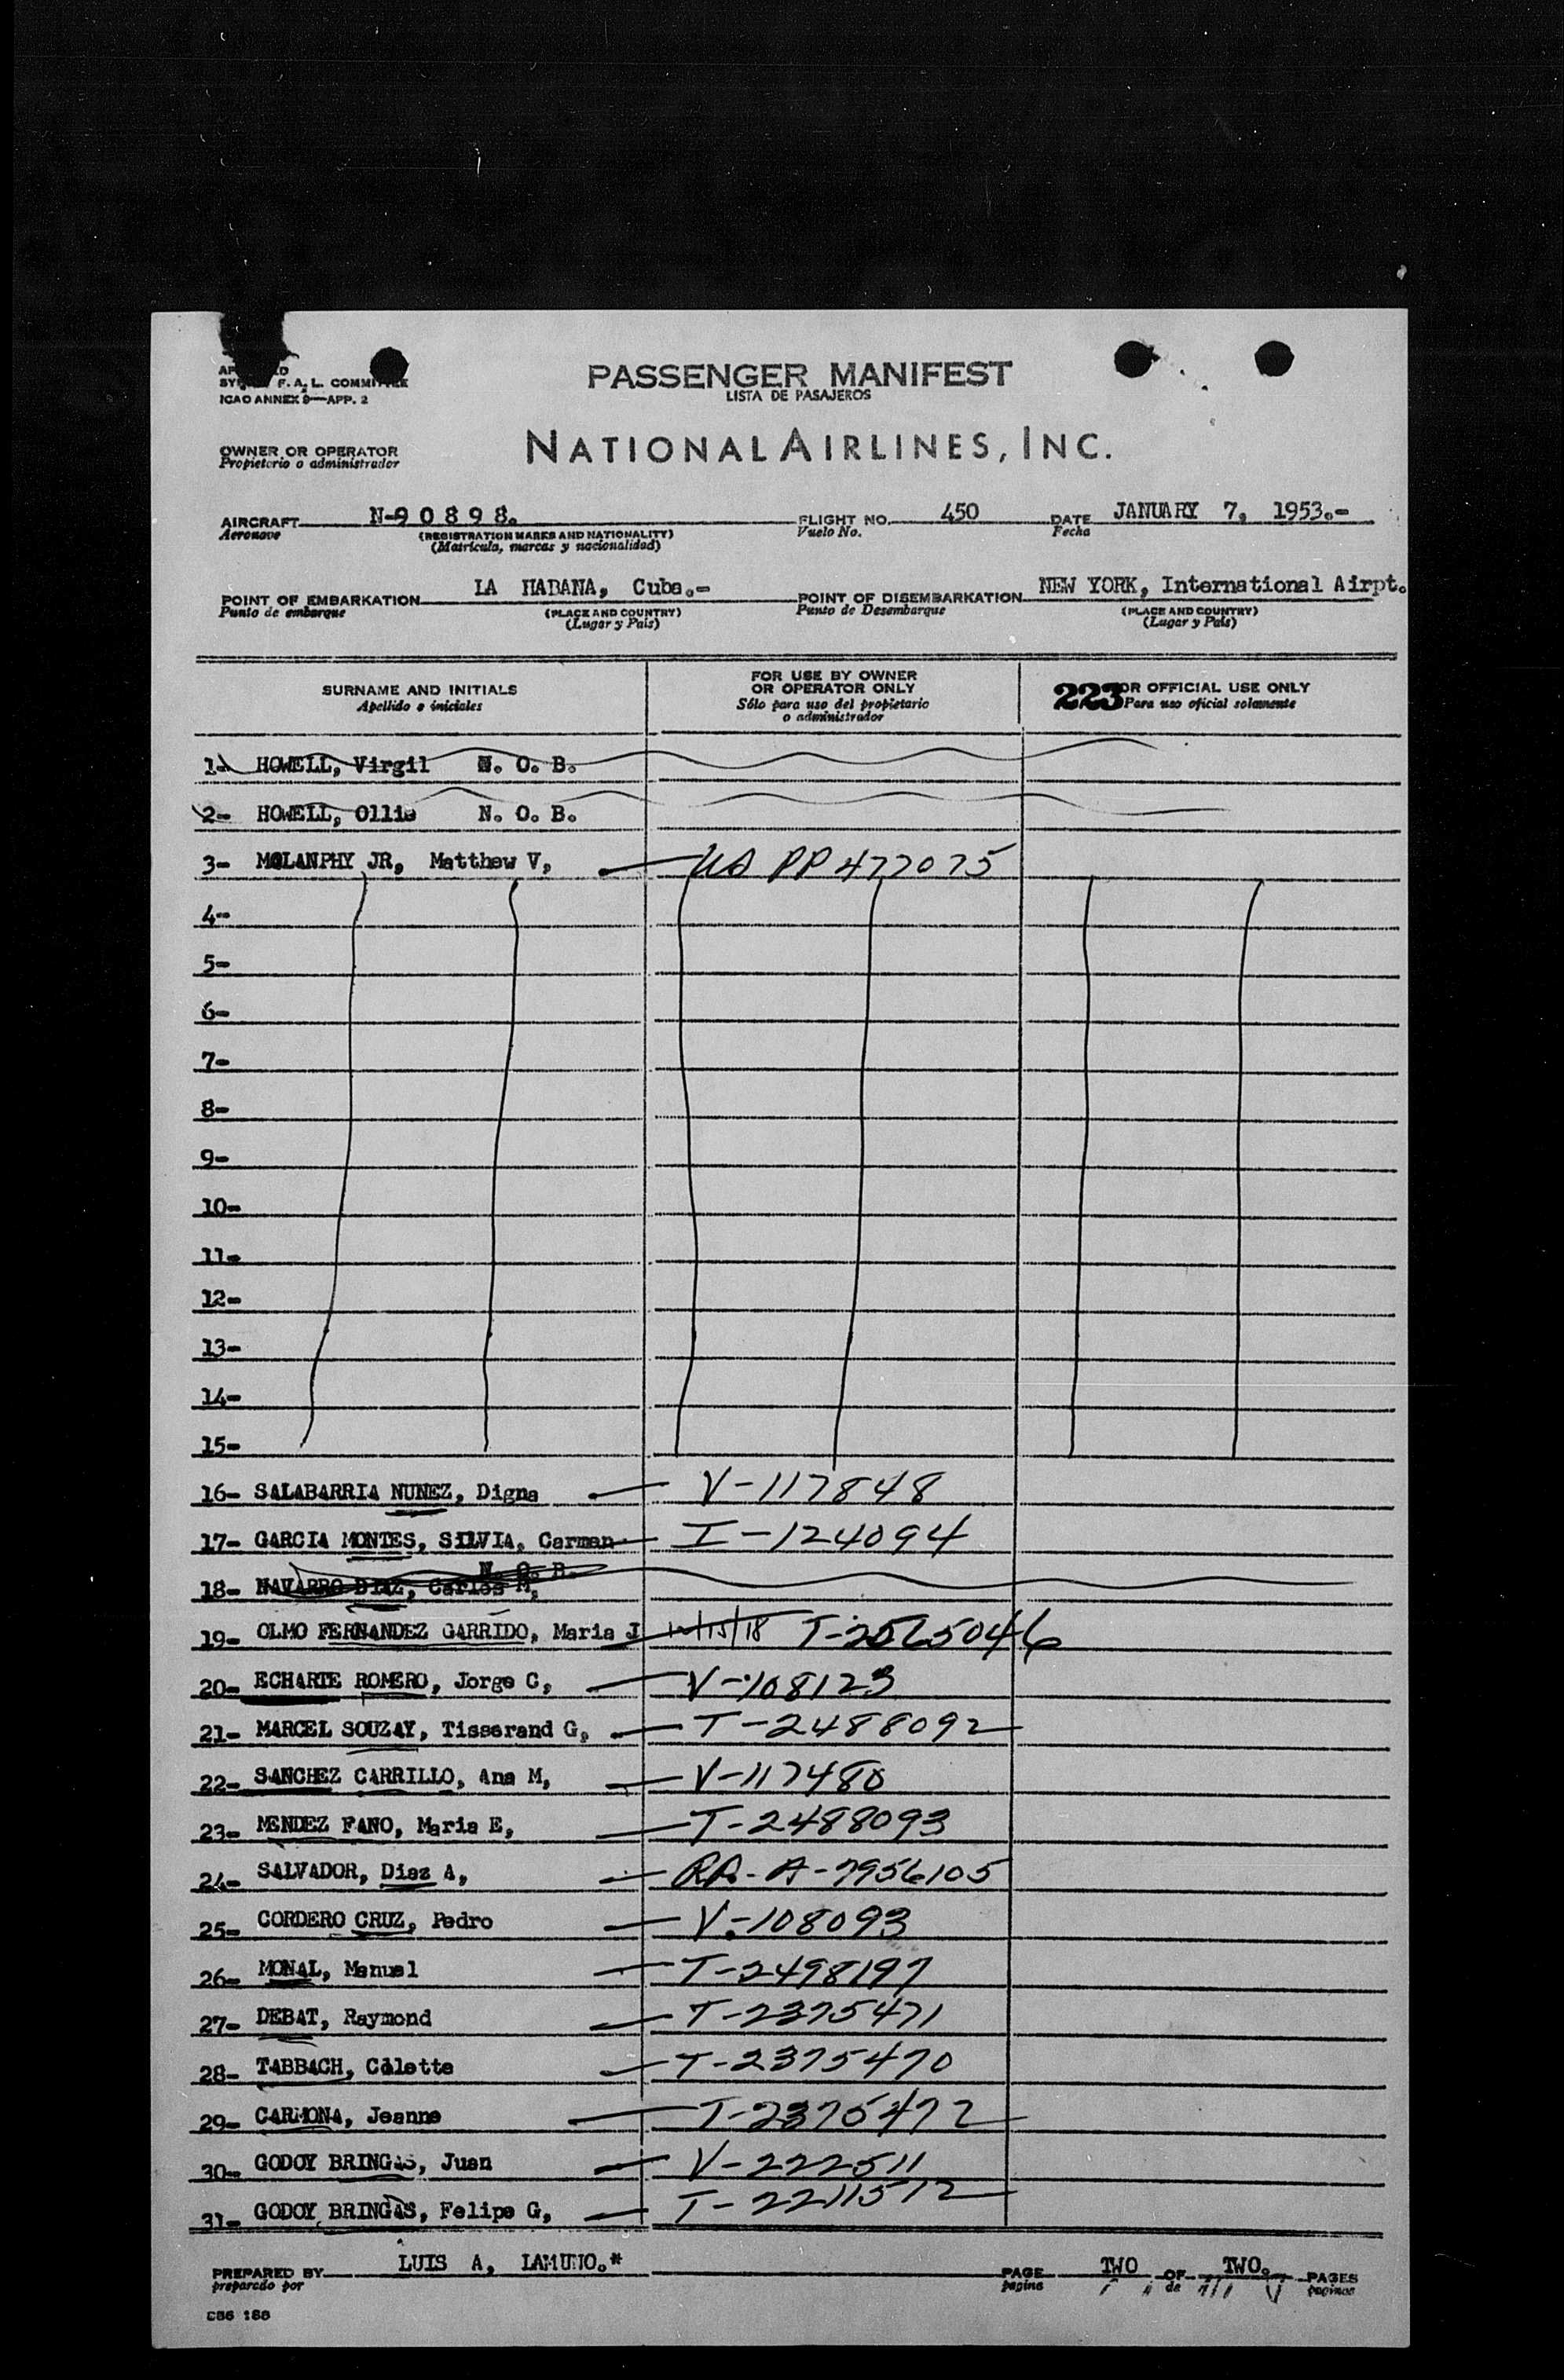 PASSENGER MANIFEST
LISTA DE PASAJEROS
F. A. L. COMMITTEE
ICAO ANNEX 9—APP. 2
NATIONAL AIRLINES, INC.
OWNER OR OPERATOR
Propietario o administrador
AIRCRAFT N-90898. FLIGHT NO. 450 DATE JANUARY 7, 1953.-
Aeronave (REGISTRATION MARKS AND NATIONALITY) Vuelo No. Fecha
(Matrícula, marcas y nacionalidad)
POINT OF EMBARKATION LA HABANA, Cuba.- POINT OF DISEMBARKATION NEW YORK, International Airpt.
Punto de embarque (PLACE AND COUNTRY) Punto de Desembarque (PLACE AND COUNTRY)
(Lugar y País) (Lugar y País)
SURNAME AND INITIALS
Apellido e iniciales
FOR USE BY OWNER
OR OPERATOR ONLY
Sólo para uso del propietario
o administrador
223 OR OFFICIAL USE ONLY
Para uso oficial solamente
1- HOWELL, Virgil N. O. B.
2- HOWELL, Ollie N. O. B.
3- MOLANPHY JR, Matthew V, US PP 477075
4-
5-
6-
7-
8-
9-
10-
11-
12-
13-
14-
15-
16- SALABARRIA NUNEZ, Digna V-117848
17- GARCIA MONTES, SILVIA, Carmen I-124094
N. O. B.
18- NAVARRO DIAZ, Carlos M,
19- OLMO FERNANDEZ GARRIDO, Maria J 12/15/18 T-2565046
20- ECHARTE ROMERO, Jorge C, V-108123
21- MARCEL SOUZAY, Tisserand G, T-2488092
22- SANCHEZ CARRILLO, Ana M, V-117480
23- MENDEZ FANO, Maria E, T-2488093
24- SALVADOR, Diaz A, RA-A-7956105
25- CORDERO CRUZ, Pedro V-108093
26- MONAL, Manuel T-2498197
27- DEBAT, Raymond T-2375471
28- TABBACH, Colette T-2375470
29- CARMONA, Jeanne T-2375472
30- GODOY BRINGAS, Juan V-222511
31- GODOY BRINGAS, Felipe G, T-2211512
PREPARED BY LUIS A, LAMUNO.* PAGE TWO OF TWO. PAGES
preparado por página de páginas